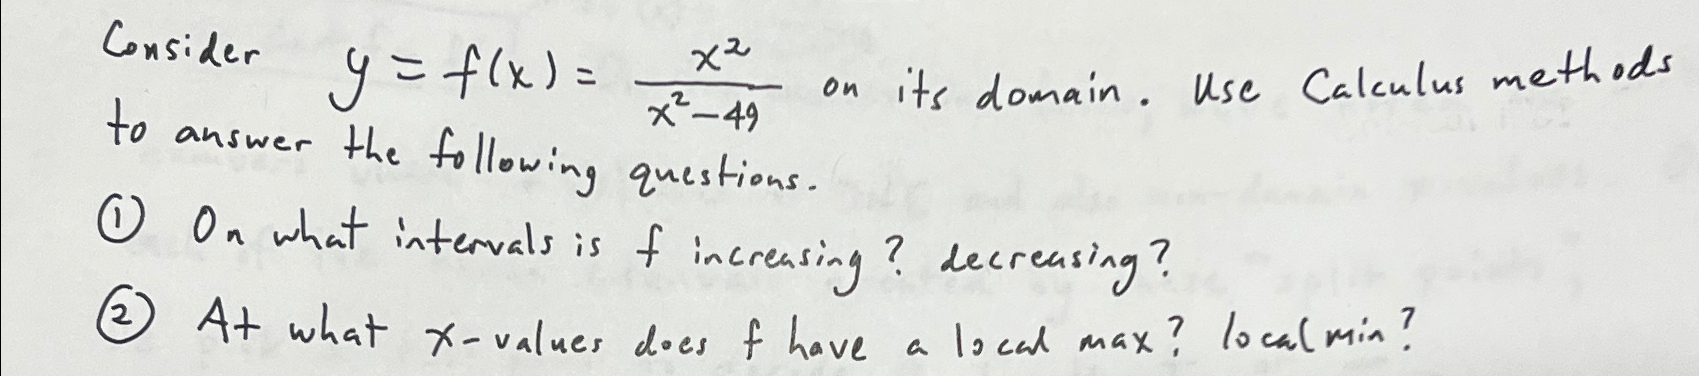 Consider y = f(x) = x²/(x²-49) on its domain. Use Calculus methods
to answer the following questions.
① On what intervals is f increasing? decreasing?
② At what x-values does f have a local max? local min?